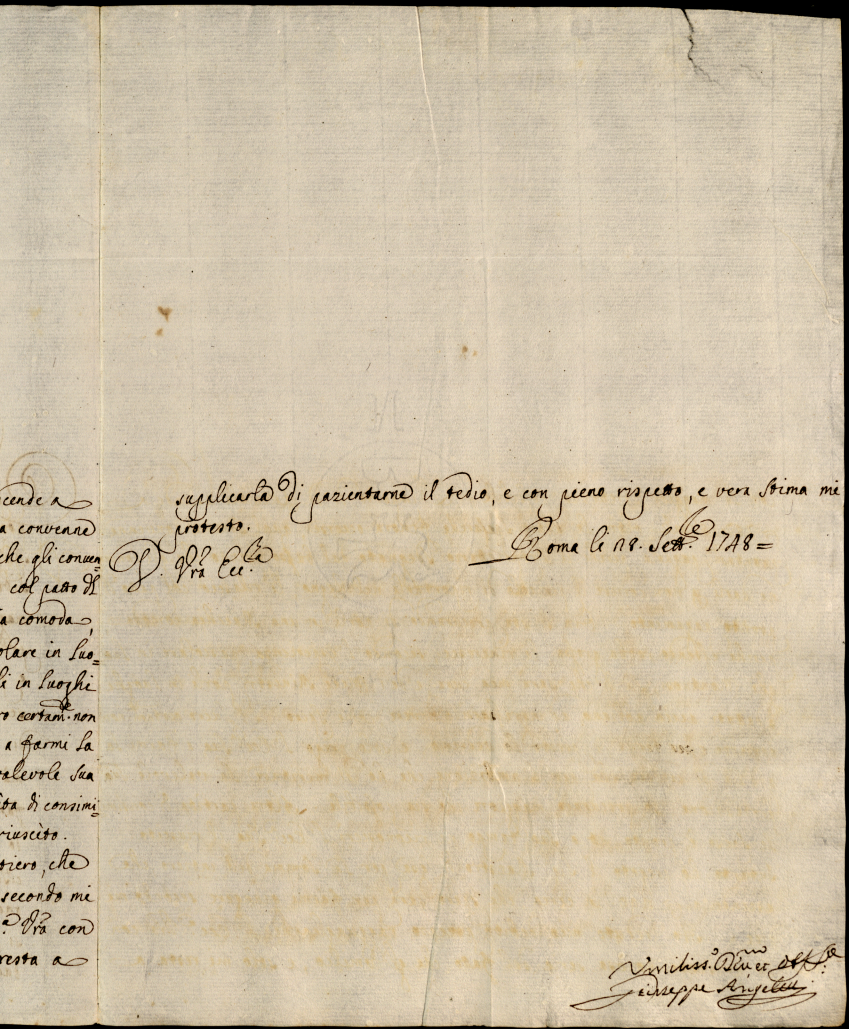 cende a
a convenne
che gli conven=
col patto di
a comoda,
olare in Luo=
li in Luoghi
ro certam.te non
a farmi la
valevole sua
ita di consimi=
riuscito.
tiero, che
secondo mi
a Vra con
resta a
supplicarla di pazientarne il tedio, e con pieno rispetto, e vera stima mi
protesto.
D. Vra Ecc.lla
Roma li 28. Sett.bre 1748=
Umiliss.o Div.mo et Obl.
Giuseppe Angel